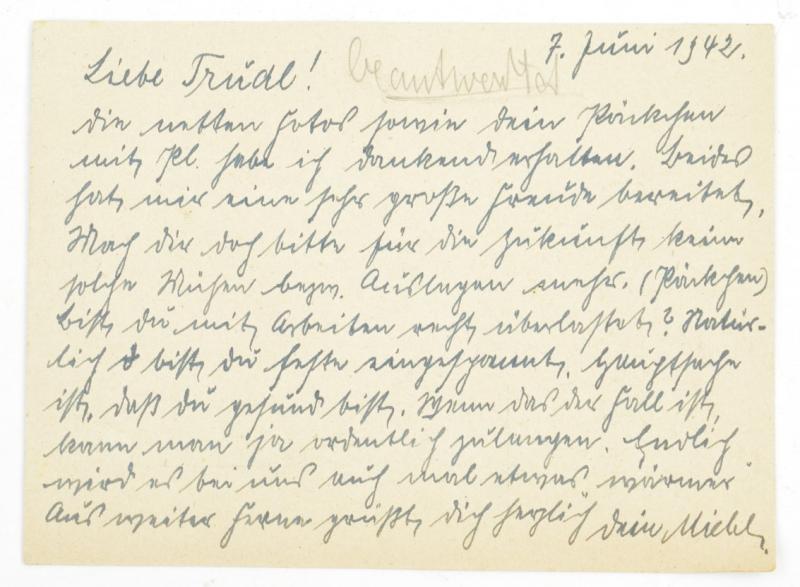 7. Juni 1942.
Liebe Trudl! beantwortet
die netten Fotos sowie dein Päckchen
mit Pl. habe ich dankend erhalten. Beides
hat mir eine sehr große Freude bereitet.
Mach dir doch bitte für die Zukunft keine
solche Mühen bezw. Auslagen mehr. (Päckchen)
Bist du mit Arbeiten recht überlastet? Natür-
lich bist du feste eingespannt. Hauptsache
ist, daß du gesund bist. Wenn das der Fall ist,
kann man ja ordentlich zulangen. Endlich
wird es bei uns auch mal etwas wärmer
Aus weiter Ferne grüßt dich herzlich dein